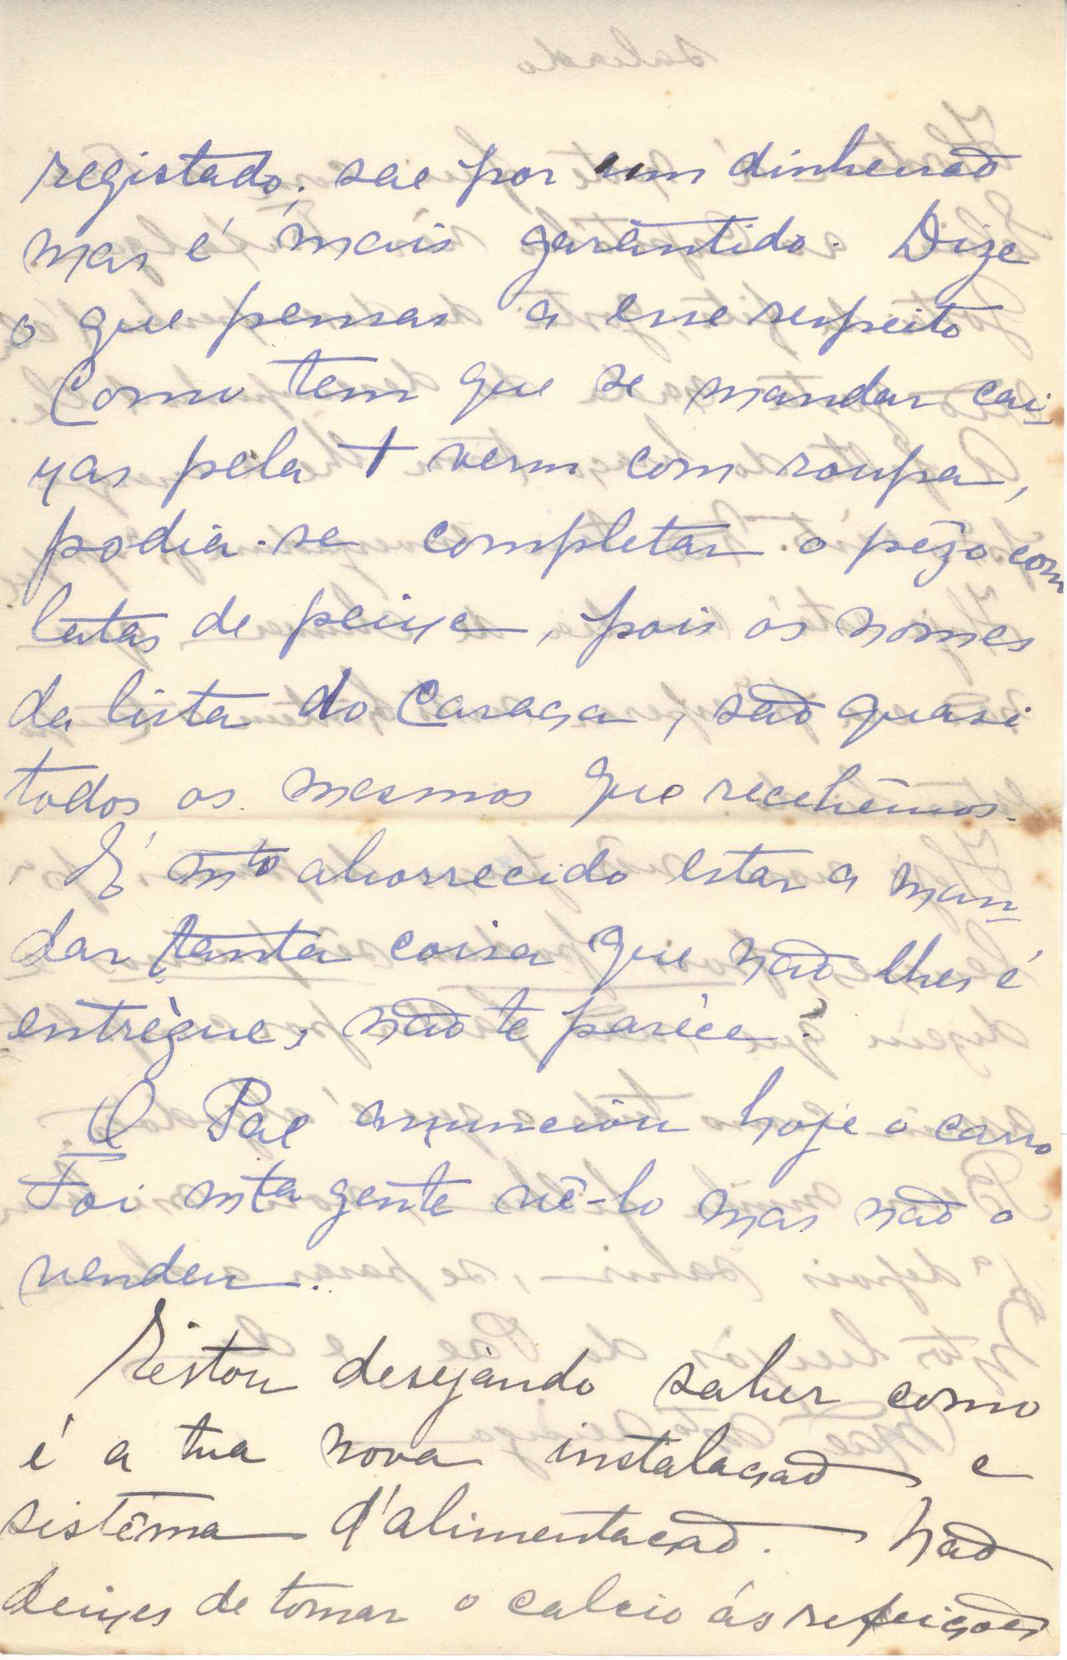 registado; sae por um dinheirão
mas é mais garantido. Dize
o que pensas a esse respeito
Como tem que se mandar cai-
xas pela + verm com roupa,
podia-se completar o pêzo com
latas de peixe, pois os nomes
da lista do Caraça, são quasi
todos os mesmos que recebêmos.
É mto aborrecido estar a man-
dar tanta coisa que não lhes é
entrègue, não te parece?
O Pae anunciou hoje o carro
Foi mta gente vê-lo mas não o
vendeu.
Estou desejando saber como
é a tua nova instalação e
sistêma d'alimentação. Não
deixes de tomar o calcio ás refeições